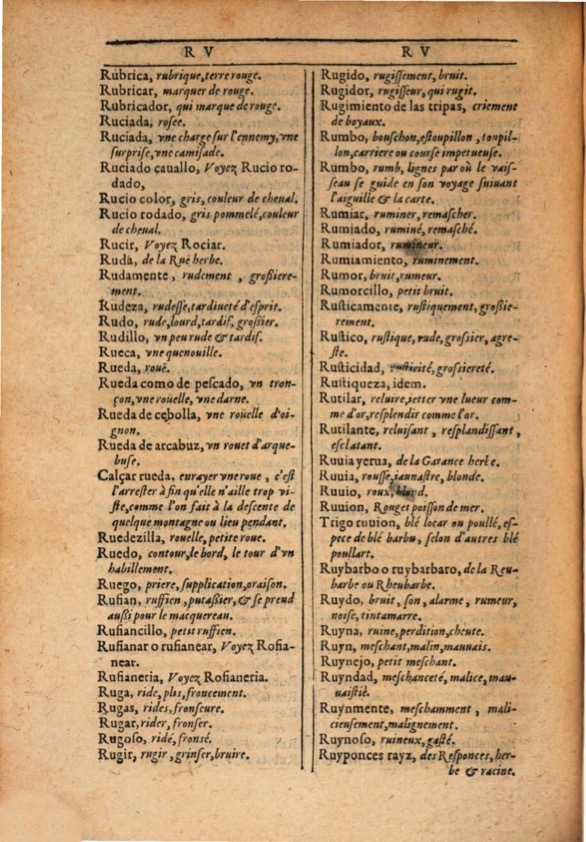 R V
Rubrica, rubrique, terre rouge.
Rubricar, marquer de rouge.
Rubricador, qui marque de rouge.
Ruciada, rosee.
Ruciada, vne charge sur l'ennemy, vne
surprise, vne camisade.
Ruciado cauallo, Voyez Rucio ro-
dado,
Rucio color, gris, couleur de cheual.
Rucio rodado, gris pommelé, couleur
de cheual.
Rucir, Voyez Rociar.
Ruda, de la Ruë herbe.
Rudamente, rudement, grossiere-
ment.
Rudeza, rudesse, tardiueté d'esprit.
Rudo, rude, lourd, tardif, grossier.
Rudillo, vn peu rude & tardif.
Rueca, vne quenouille.
Rueda, rouë.
Rueda como de pescado, vn tron-
çon, vne roüelle, vne darne.
Rueda de cebolla, vne roüelle d'oi-
gnon.
Rueda de arcabuz, vn rouet d'arque-
buse.
Calçar rueda, enrayer vne roue, c'est
l'arrester à fin qu'elle n'aille trop vi-
ste, comme l'on fait à la descente de
quelque montagne ou lieu pendant.
Ruedezilla, rouelle, petite roue.
Ruedo, contour, le bord, le tour d'vn
habillement.
Ruego, priere, supplication, oraison.
Rufian, ruffien, putassier, & se prend
aussi pour le macquereau.
Rufiancillo, petit ruffien.
Rufianar o rufianear, Voyez Rofia-
near.
Rufianeria, Voyez Rofianeria.
Ruga, ride, plis, froncement.
Rugas, rides, fronseure.
Rugar, rider, fronser.
Rugoso, ridé, fronsé.
Rugir, rugir, grinser, bruire.
R V
Rugido, rugissement, bruit.
Rugidor, rugisseur, qui rugit.
Rugimiento de las tripas, criement
de boyaux.
Rumbo, bouschon, estoupillon, toupil-
lon, carriere ou course impetueuse.
Rumbo, rumb, lignes par où le vais-
seau se guide en son voyage suiuant
l'aiguille & la carte.
Rumiar, ruminer, remascher.
Rumiado, ruminé, remasché.
Rumiador, rumineur.
Rumiamiento, ruminement.
Rumor, bruit, rumeur.
Rumorcillo, petit bruit.
Rusticamente, rustiquement, grossie-
rement.
Rustico, rustique, rude, grossier, agre-
ste.
Rusticidad, rusticité, grossiereté.
Rustiqueza, idem.
Rutilar, reluire, ietter vne lueur com-
me d'or, resplendir comme l'or.
Rutilante, reluisant, resplandissant,
esclatant.
Ruuia yerua, de la Garance herbe.
Ruuia, rousse, iaunastre, blonde.
Ruuio, roux, blond.
Ruuion, Rouget poisson de mer.
Trigo ruuion, blé locar ou poullé, es-
pece de blé barbu, selon d'autres blé
poullart.
Ruybarbo o ruybarbaro, de la Reu-
barbe ou Rheubarbe.
Ruydo, bruit, son, alarme, rumeur,
noise, tintamarre.
Ruyna, ruine, perdition, cheute.
Ruyn, meschant, malin, mauuais.
Ruynejo, petit meschant.
Ruyndad, meschanceté, malice, mau-
uaistié.
Ruynmente, meschamment, mali-
cieusement, malignement.
Ruynoso, ruineux, gasté.
Ruyponces rayz, des Responces, her-
be & racine.